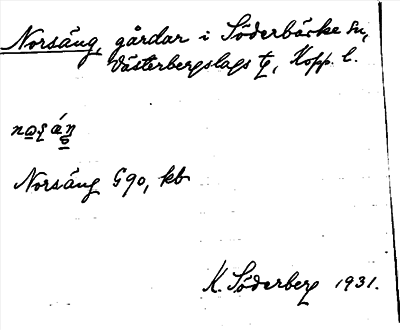 Norsäng, gårdar i Söderbärke sn,
Västerbergslags tg, Kopp. l.
Norsäng G90, kb
K. Söderberg 1931.